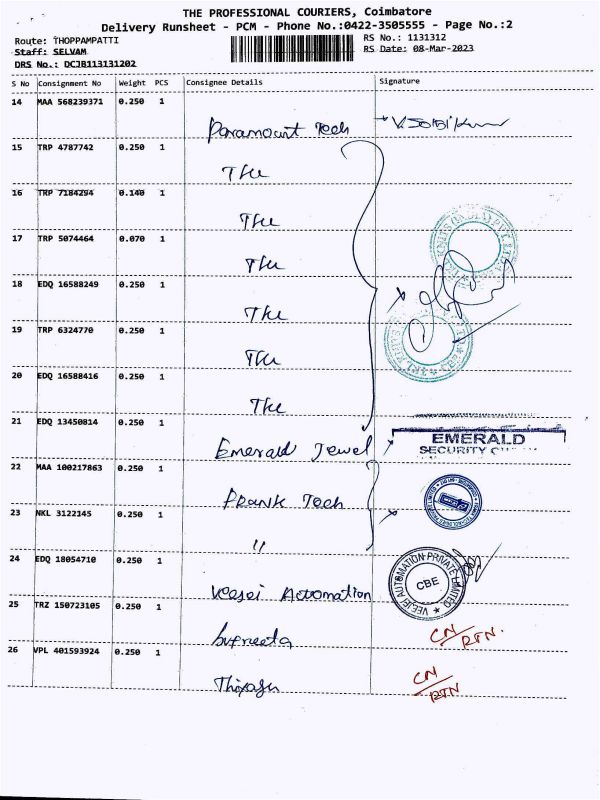 THE PROFESSIONAL COURIERS, Coimbatore
Delivery Runsheet - PCM - Phone No.:0422-3505555 - Page No.:2
Route: THOPPAMPATTI RS No.: 1131312
Staff: SELVAM RS Date: 08-Mar-2023
DRS No.: DCJB113131202
S No Consignment No Weight PCS Consignee Details Signature
14 MAA 568239371 0.250 1
Paramount Tech
15 TRP 4787742 0.250 1
16 TRP 7184294 0.140 1
17 TRP 5074464 0.070 1
18 EDQ 16588249 0.250 1
19 TRP 6324770 0.250 1
20 EDQ 16588416 0.250 1
21 EDQ 13450814 0.250 1
Emerald Jewel EMERALD
SECURITY
22 MAA 100217863 0.250 1
Prank Tech
23 NKL 3122145 0.250 1
"
24 EDQ 18054710 0.250 1
Veejei Automation VEEJEI AUTOMATION PRIVATE LIMITED CBE
25 TRZ 150723105 0.250 1
Supreeta CN/RTN.
26 VPL 401593924 0.250 1
CN/RTN